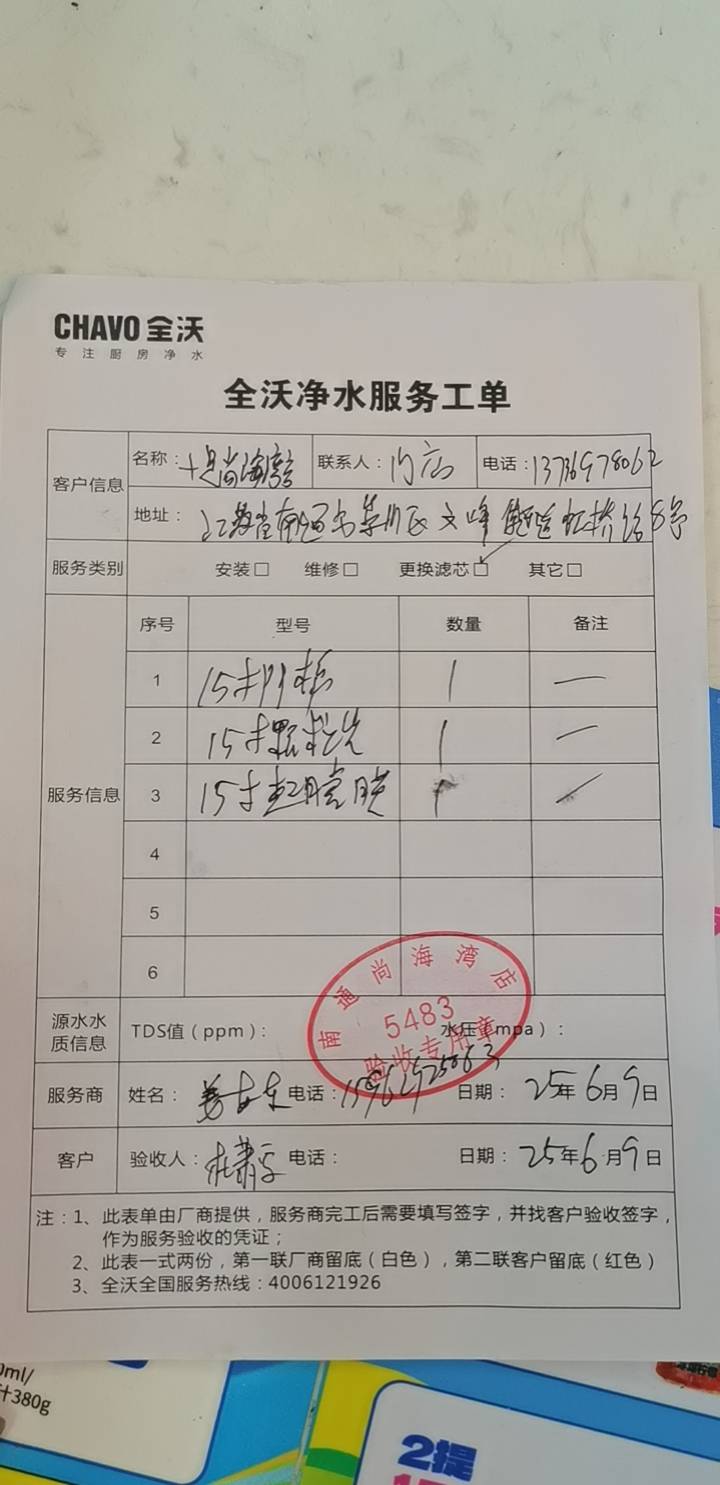 CHAVO 全沃
专注厨房净水
全沃净水服务工单
客户信息
名称： 联系人：门店 电话：13736978062
地址：江苏省南通市崇川区文峰街道虹桥路8号
服务类别 安装□ 维修□ 更换滤芯□ 其它□
服务信息
序号 型号 数量 备注
1 15寸 1 一
2 15寸颗粒炭 1 一
3 15寸超滤膜 1 一
4
5
6
南通尚海湾店
5483
验收专用章
源水水质信息 TDS值（ppm）： 水压（mpa）：
服务商 姓名： 电话： 日期：25年6月9日
客户 验收人： 电话： 日期：25年6月9日
注：1、此表单由厂商提供，服务商完工后需要填写签字，并找客户验收签字，
作为服务验收的凭证；
2、此表一式两份，第一联厂商留底（白色），第二联客户留底（红色）
3、全沃全国服务热线：4006121926
0ml/
380g
2提